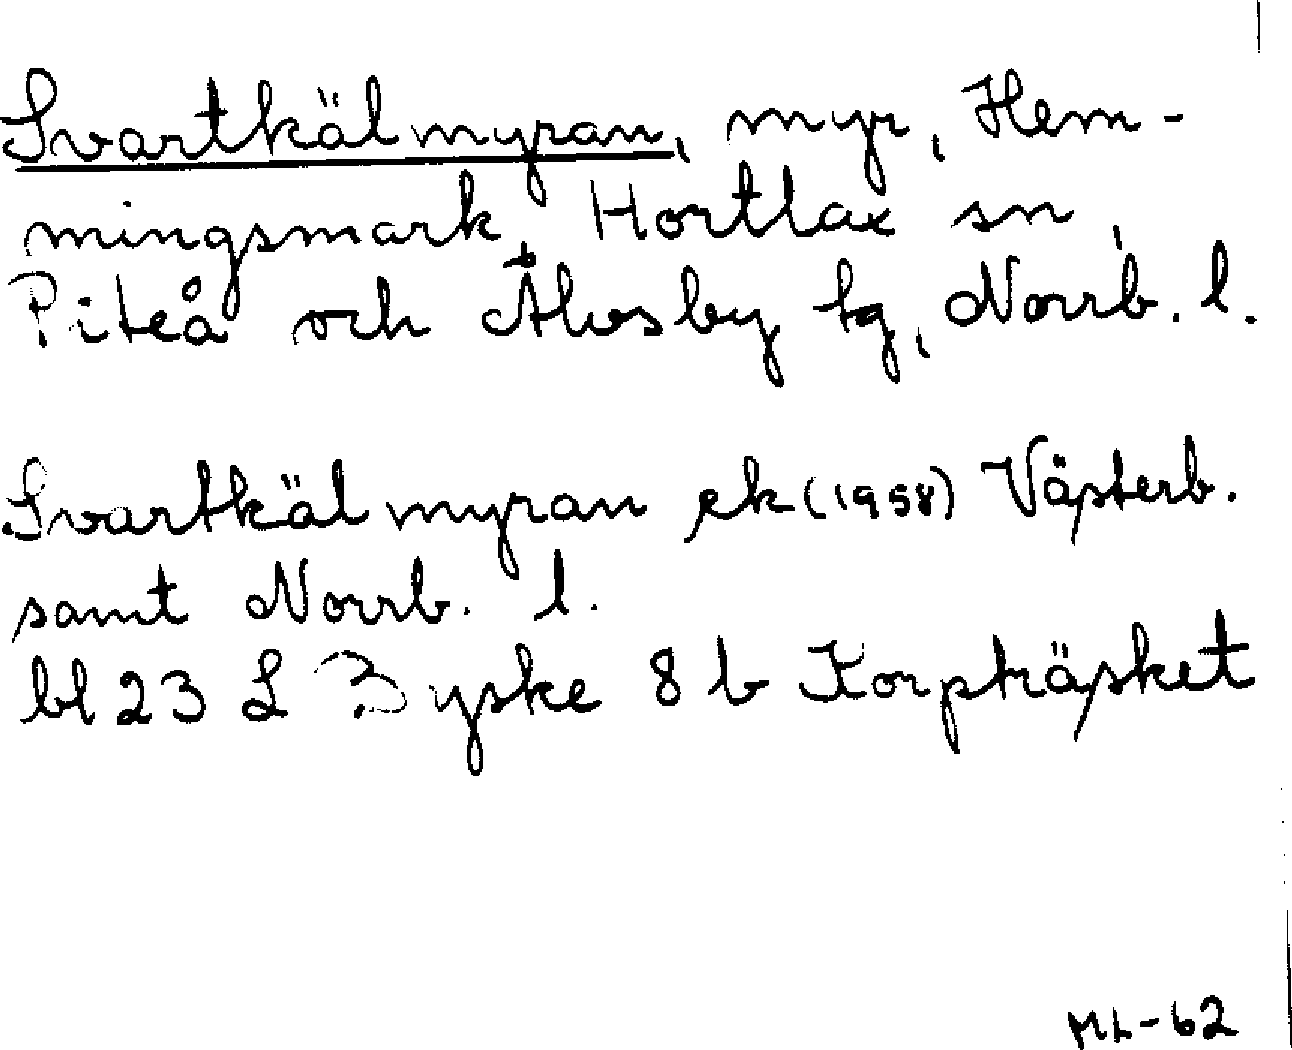 Svartkälmyran, myr, Hem-
mingsmark, Hortlax sn,
Piteå och Älvsby tg, Norrb. l.
Svartkälmyran ek (1958) Västerb.
samt Norrb. l.
bl 23 L Byske 8 b Korpträsket
ML-62